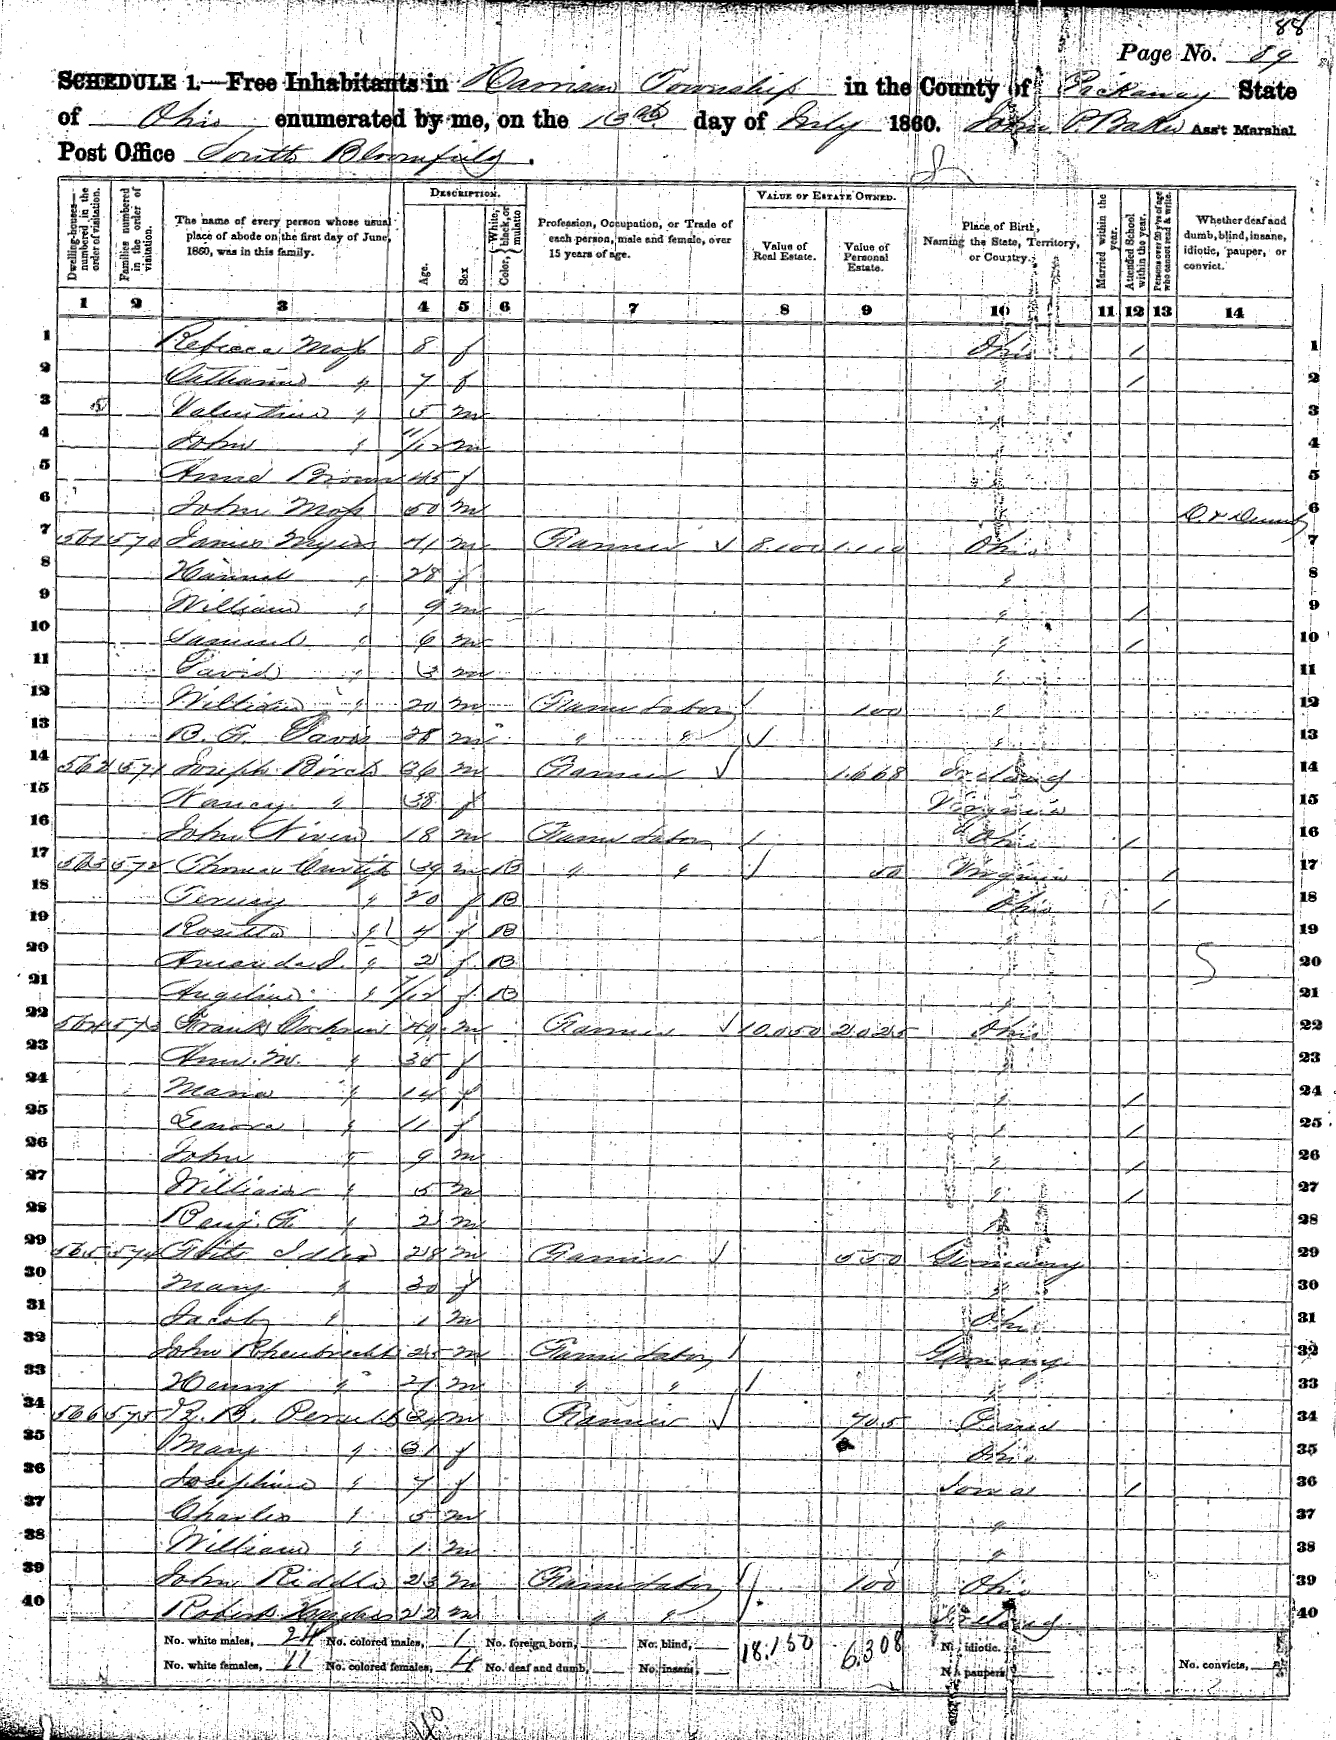 88
Page No. 89
SCHEDULE 1.—Free Inhabitants in Harrison Township in the County of Pickaway State
of Ohio enumerated by me, on the 13th day of July 1860. John P Baker Ass't Marshal
Post Office South Bloomfield.
Dwelling-houses—numbered in the order of visitation.
Families numbered in the order of visitation.
The name of every person whose usual place of abode on the first day of June, 1860, was in this family.
DESCRIPTION.
Age.
Sex
Color, { White, black, or mulatto
Profession, Occupation, or Trade of each person, male and female, over 15 years of age.
VALUE OF ESTATE OWNED.
Value of Real Estate.
Value of Personal Estate.
Place of Birth, Naming the State, Territory, or Country.
Married within the year.
Attended School within the year.
Persons over 20 y'rs of age who cannot read & write.
Whether deaf and dumb, blind, insane, idiotic, pauper, or convict.
1 2 3 4 5 6 7 8 9 10 11 12 13 14
1 Rebecca Moss 8 f Ohio / 1
2 Catharine " 7 f " / 2
3 5 Valentine " 5 m " 3
4 John " 11/12 m " 4
5 Brown 45 f " 5
6 John Moss 50 m " D. & Dumb 6
7 561 570 James Myers 41 m Farmer 8.100 1.110 Ohio 7
8 Hannah " 28 f " 8
9 William " 9 m " / 9
10 Samuel " 6 m " / 10
11 David " 3 m " 11
12 William " 20 m Farm Labor 100 " 12
13 B. F. Davis 28 m " " " 13
14 562 571 Joseph Birch 36 m Farmer 1.668 Ireland 14
15 Nancy " 38 f Virginia 15
16 John Niven 18 m Farm Labor Ohio / 16
17 563 572 Thomas Curtis 39 m B " " 50 Virginia / 17
18 " 20 f B Ohio / 18
19 Rosetta " 4 f B " 19
20 Amanda J. " 2 f B " 20
21 Angeline " 7/12 f B " 21
22 564 573 Frank Cochran 49 m Farmer 10.050 2.025 Ohio 22
23 Ann M. " 35 f " 23
24 Maria " 14 f " / 24
25 Lenora " 11 f " / 25
26 John " 9 m " / 26
27 William " 5 m " / 27
28 Benj. F. " 2 m " 28
29 565 574 28 m Farmer 550 Germany 29
30 Mary " 30 f " 30
31 Jacob " 1 m Ohio 31
32 John 25 m Farm Labor Germany 32
33 Henry " 21 m " " " 33
34 566 575 34 m Farmer 705 34
35 Mary " 31 f Ohio 35
36 Josephine " 7 f Iowa / 36
37 Charles " 5 m " 37
38 William " 1 m " 38
39 John Riddle 23 m Farm Labor 100 Ohio 39
40 Robert 22 m " " Ireland 40
No. white males, 24 No. colored males, 1 No. foreign born, No. blind, 18.150 6.308 No. idiotic.
No. white females, 11 No. colored females, 4 No. deaf and dumb, No. insane, No. paupers No. convicts,